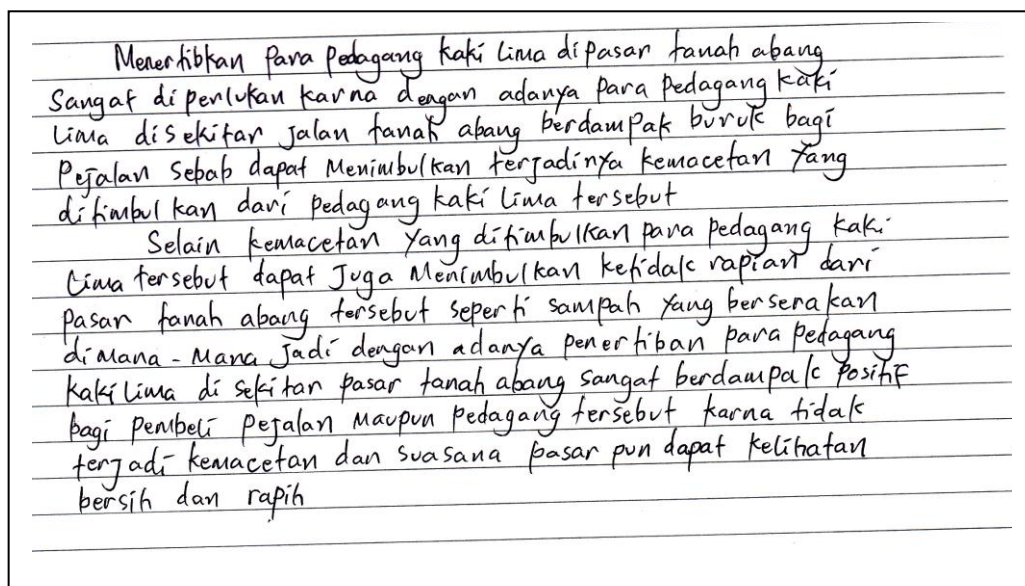 Menertibkan Para Pedagang kaki Lima dipasar tanah abang
Sangat di perlukan karna dengan adanya Para Pedagang kaki
Lima disekitar jalan tanah abang berdampak buruk bagi
Pejalan Sebab dapat Menimbulkan terjadinya kemacetan Yang
ditimbul kan dari pedagang kaki Lima tersebut
Selain kemacetan Yang ditimbulkan para pedagang kaki
Lima tersebut dapat Juga Menimbulkan ketidak rapian dari
pasar tanah abang tersebut seperti sampah Yang berserakan
dimana-Mana Jadi dengan adanya penertiban para pedagang
kaki Lima di sekitar pasar tanah abang sangat berdampak Positif
bagi pembeli pejalan Maupun pedagang tersebut karna tidak
terjadi kemacetan dan suasana pasar pun dapat kelihatan
bersih dan rapih